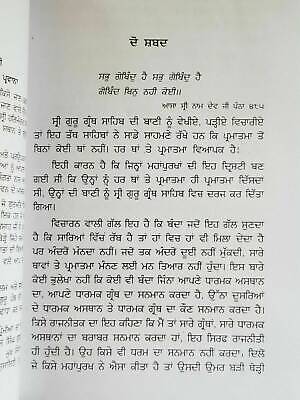 ਦੋ ਸ਼ਬਦ
ਸਭੁ ਗੋਬਿੰਦੁ ਹੈ ਸਭੁ ਗੋਬਿੰਦੁ ਹੈ
ਗੋਬਿੰਦ ਬਿਨੁ ਨਹੀ ਕੋਈ॥
ਆਸਾ ਸ੍ਰੀ ਨਾਮ ਦੇਵ ਜੀ ਪੰਨਾ ੪੮੫
ਸ੍ਰੀ ਗੁਰੂ ਗ੍ਰੰਥ ਸਾਹਿਬ ਦੀ ਬਾਣੀ ਨੂੰ ਵੇਖੀਏ, ਪੜ੍ਹੀਏ ਵਿਚਾਰੀਏ
ਤਾਂ ਇਹ ਤੱਥ ਸਾਹਿਬਾਂ ਨੇ ਸਾਡੇ ਸਾਹਮਣੇ ਰੱਖੇ ਹਨ ਕਿ ਪ੍ਰਮਾਤਮਾ ਤੋਂ
ਬਿਨਾਂ ਕੋਈ ਥਾਂ ਨਹੀਂ। ਹਰ ਥਾਂ ਤੇ ਪ੍ਰਮਾਤਮਾ ਵਿਆਪਕ ਹੈ।
ਇਹੀ ਕਾਰਨ ਹੈ ਕਿ ਜਿਨ੍ਹਾਂ ਮਹਾਂਪੁਰਖਾਂ ਦੀ ਇਹ ਦ੍ਰਿਸ਼ਟੀ ਬਣ
ਗਈ ਸੀ ਕਿ ਉਨ੍ਹਾਂ ਨੂੰ ਹਰ ਥਾਂ ਤੇ ਪ੍ਰਮਾਤਮਾ ਹੀ ਪ੍ਰਮਾਤਮਾ ਦਿੱਸਦਾ
ਸੀ, ਉਨ੍ਹਾਂ ਦੀ ਬਾਣੀ ਨੂੰ ਸ੍ਰੀ ਗੁਰੂ ਗ੍ਰੰਥ ਸਾਹਿਬ ਵਿਚ ਦਰਜ ਕਰ ਦਿੱਤਾ
ਗਿਆ।
ਵਿਚਾਰਨ ਵਾਲੀ ਗੱਲ ਇਹ ਹੈ ਕਿ ਬੰਦਾ ਜਦੋਂ ਇਹ ਗੱਲ ਸੁਣਦਾ
ਹੈ ਕਿ ਸਾਰਿਆਂ ਵਿੱਚ ਰੱਬ ਹੈ ਤਾਂ ਹਾਂ ਵਿਚ ਹਾਂ ਵੀ ਮਿਲਾ ਦੇਂਦਾ ਹੈ
ਪਰ ਅੰਦਰੋਂ ਮੰਨਦਾ ਨਹੀਂ। ਜਦ ਤਕ ਅੰਦਰੋਂ ਦੂਈ ਨਹੀਂ ਮੁੱਕਦੀ, ਸਾਰੇ
ਥਾਵਾਂ ਤੇ ਪ੍ਰਮਾਤਮਾ ਮੰਨਣ ਲਈ ਮਨ ਤਿਆਰ ਨਹੀਂ ਹੁੰਦਾ। ਇਸ ਬਾਰੇ
ਕੋਈ ਭੁਲੇਖਾ ਨਹੀਂ ਕਿ ਕੋਈ ਵੀ ਬੰਦਾ ਜਿੰਨਾ ਆਪਣੇ ਧਾਰਮਕ ਅਸਥਾਨ
ਦਾ, ਆਪਣੇ ਧਾਰਮਕ ਗ੍ਰੰਥ ਦਾ ਸਨਮਾਨ ਕਰਦਾ ਹੈ, ਉੱਨਾ ਦੂਸਰਿਆਂ
ਦੇ ਧਾਰਮਕ ਅਸਥਾਨ ਤੇ ਗ੍ਰੰਥ ਦਾ ਕੌਣ ਸਨਮਾਨ ਕਰਦਾ ਹੈ।
ਕਿਸੇ ਰਾਜਨੀਤਕ ਦਾ ਇਹ ਕਹਿਣਾ ਕਿ ਮੈਂ ਤਾਂ ਸਾਰੇ ਗ੍ਰੰਥਾਂ, ਸਾਰੇ ਧਾਰਮਕ
ਅਸਥਾਨਾਂ ਦਾ ਬਰਾਬਰ ਸਨਮਾਨ ਕਰਦਾ ਹਾਂ, ਇਹ ਸਿਰਫ ਰਾਜਨੀਤੀ
ਹੀ ਹੁੰਦੀ ਹੈ। ਉਹ ਕਿਸੇ ਵੀ ਧਰਮ ਦਾ ਸਨਮਾਨ ਨਹੀਂ ਕਰਦਾ, ਦਿਲੋਂ
ਜੇ ਕਿਸੇ ਮਹਾਂਪੁਰਖ ਨੇ ਐਸਾ ਕੀਤਾ ਹੈ ਤਾਂ ਉਸਦੀ ਉਮਰ ਬੜੀ ਥੋੜੀ